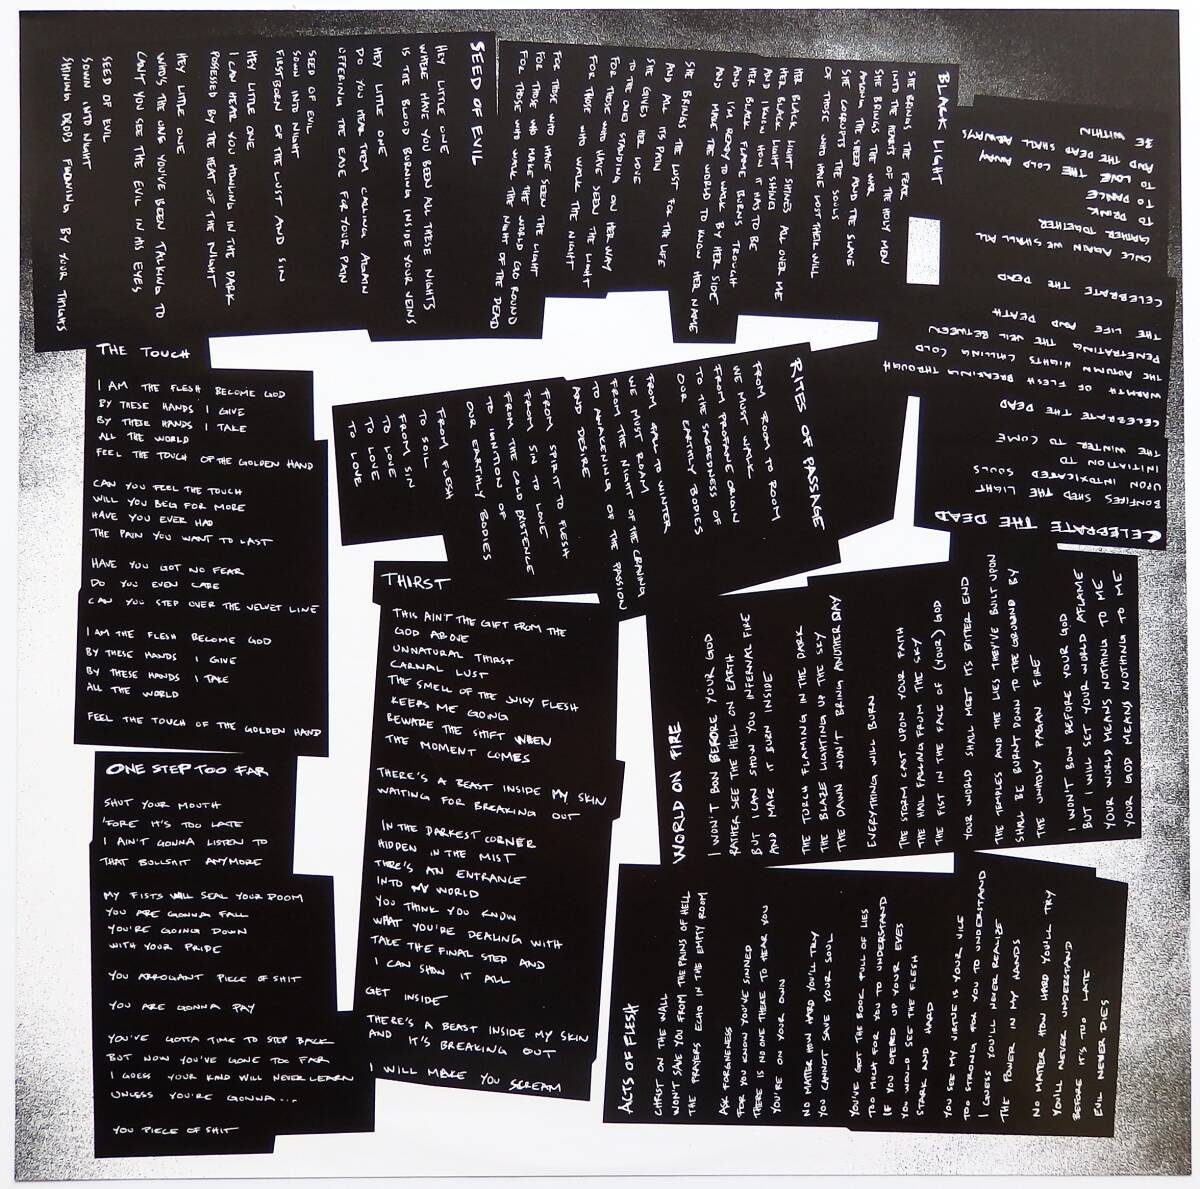 SEED OF EVIL
HEY LITTLE ONE
WHERE HAVE YOU BEEN ALL THESE NIGHTS
IS THE BLOOD BURNING INSIDE YOUR VEINS
HEY LITTLE ONE
DO YOU HEAR THEM CALLING AGAIN
OFFERING THE EASE FOR YOUR PAIN
SEED OF EVIL
SOWN INTO NIGHT
FIRSTBORN OF THE LUST AND SIN
HEY LITTLE ONE
I CAN HEAR YOU HOWLING IN THE DARK
POSSESSED BY THE HEAT OF THE NIGHT
HEY LITTLE ONE
WHO'S THE ONE YOU'VE BEEN TALKING TO
CAN'T YOU SEE THE EVIL IN HIS EYES
SEED OF EVIL
SOWN INTO NIGHT
SHINING DROPS FLOWING BY YOUR THIGHS
BLACK LIGHT
SHE BRINGS THE FEAR
INTO THE HEARTS OF THE HOLY MEN
SHE BRINGS THE WAR
AMONG THE SHEEP AND THE SLAVE
SHE CORRUPTS THE SOULS
OF THOSE WHO HAVE LOST THEIR WILL
HER BLACK LIGHT SHINES ALL OVER ME
HER BLACK LIGHT SHINES
AND I KNOW HOW IT HAS TO BE
HER BLACK FLAME BURNS TROUGH
AND I'M READY TO WALK BY HER SIDE
AND MAKE THE WORLD TO KNOW HER NAME
SHE BRINGS THE LUST FOR THE LIFE
AND ALL ITS PAIN
SHE GIVES HER LOVE
TO THE ONES STANDING ON HER WAY
FOR THOSE WHO HAVE SEEN THE LIGHT
FOR THOSE WHO WALK THE NIGHT
FOR THOSE WHO HAVE SEEN THE LIGHT
FOR THOSE WHO MAKE THE WORLD GO ROUND
FOR THOSE WHO WALK THE NIGHT OF THE DEAD
CELEBRATE THE DEAD
BONFIRES SHED THE LIGHT
UPON INTOXICATED SOULS
INITIATION TO
THE WINTER TO COME
CELEBRATE THE DEAD
WARMTH OF FLESH BREAKING THROUGH
THE AUTUMN NIGHTS CHILLING COLD
PENETRATING THE VEIL BETWEEN
THE LIFE AND DEATH
CELEBRATE THE DEAD
ONCE AGAIN WE SHALL ALL
GATHER TOGETHER
TO DRINK
TO DANCE
TO LOVE THE COLD AWAY
AND THE DEAD SHALL ALWAYS
BE WITHIN
THE TOUCH
I AM THE FLESH BECOME GOD
BY THESE HANDS I GIVE
BY THESE HANDS I TAKE
ALL THE WORLD
FEEL THE TOUCH OF THE GOLDEN HAND
CAN YOU FEEL THE TOUCH
WILL YOU BEG FOR MORE
HAVE YOU EVER HAD
THE PAIN YOU WANT TO LAST
HAVE YOU GOT NO FEAR
DO YOU EVEN CARE
CAN YOU STEP OVER THE VELVET LINE
I AM THE FLESH BECOME GOD
BY THESE HANDS I GIVE
BY THESE HANDS I TAKE
ALL THE WORLD
FEEL THE TOUCH OF THE GOLDEN HAND
RITES OF PASSAGE
FROM ROOM TO ROOM
WE MUST WALK
FROM PROFANE ORIGIN
TO THE SACREDNESS OF
OUR EARTHLY BODIES
FROM FALL TO WINTER
WE MUST ROAM
FROM THE NIGHT OF THE CRAVING
TO AWAKENING OF THE PASSION
AND DESIRE
FROM SPIRIT TO FLESH
FROM SIN TO LOVE
FROM THE COLD EXISTENCE
TO IGNITION OF
OUR EARTHLY BODIES
FROM FLESH
TO SOIL
FROM SIN
TO LOVE
TO LOVE
TO LOVE
THIRST
THIS AIN'T THE GIFT FROM THE
GOD ABOVE
UNNATURAL THIRST
CARNAL LUST
THE SMELL OF THE JUICY FLESH
KEEPS ME GOING
BEWARE THE SHIFT WHEN
THE MOMENT COMES
THERE'S A BEAST INSIDE MY SKIN
WAITING FOR BREAKING OUT
IN THE DARKEST CORNER
HIDDEN IN THE MIST
THERE'S AN ENTRANCE
INTO MY WORLD
YOU THINK YOU KNOW
WHAT YOU'RE DEALING WITH
TAKE THE FINAL STEP AND
I CAN SHOW IT ALL
GET INSIDE
THERE'S A BEAST INSIDE MY SKIN
AND IT'S BREAKING OUT
I WILL MAKE YOU SCREAM
WORLD ON FIRE
I WON'T BOW BEFORE YOUR GOD
RATHER SEE THE HELL ON EARTH
BUT I CAN SHOW YOU INFERNAL FIRE
AND MAKE IT BURN INSIDE
THE TORCH FLAMING IN THE DARK
THE BLAZE LIGHTING UP THE SKY
THE DAWN WON'T BRING ANOTHER DAY
EVERYTHING WILL BURN
THE STORM CAST UPON YOUR PATH
THE HAIL FALLING FROM THE SKY
THE FIST IN THE FACE OF (YOUR) GOD
YOUR WORLD SHALL MEET ITS BITTER END
THE TEMPLES AND THE LIES THEY'VE BUILT UPON
SHALL BE BURNT DOWN TO THE GROUND BY
THE UNHOLY PAGAN FIRE
I WON'T BOW BEFORE YOUR GOD
BUT I WILL SET YOUR WORLD AFLAME
YOUR WORLD MEANS NOTHING TO ME
YOUR GOD MEANS NOTHING TO ME
ONE STEP TOO FAR
SHUT YOUR MOUTH
'FORE IT'S TOO LATE
I AIN'T GONNA LISTEN TO
THAT BULLSHIT ANYMORE
MY FISTS WILL SEAL YOUR DOOM
YOU ARE GONNA FALL
YOU'RE GOING DOWN
WITH YOUR PRIDE
YOU ARROGANT PIECE OF SHIT
YOU ARE GONNA PAY
YOU'VE GOTTA TIME TO STEP BACK
BUT NOW YOU'VE GONE TOO FAR
I GUESS YOUR KIND WILL NEVER LEARN
UNLESS YOU'RE GONNA...
YOU PIECE OF SHIT
ACTS OF FLESH
CHRIST ON THE WALL
WON'T SAVE YOU FROM THE PAINS OF HELL
THE PRAYERS ECHO IN THE EMPTY ROOM
ASK FORGIVENESS
FOR YOU KNOW YOU'VE SINNED
THERE IS NO ONE THERE TO HEAR YOU
YOU'RE ON YOUR OWN
NO MATTER HOW HARD YOU'LL TRY
YOU CANNOT SAVE YOUR SOUL
YOU'VE GOT THE BOOK FULL OF LIES
TOO MUCH FOR YOU TO UNDERSTAND
IF YOU OPENED UP YOUR EYES
YOU WOULD SEE THE FLESH
STARK AND HARD
YOU SEE MY VIRTUE IS YOUR VICE
TOO STRONG FOR YOU TO UNDERSTAND
I GUESS YOU'LL NEVER REALIZE
THE POWER IN MY HANDS
NO MATTER HOW HARD YOU'LL TRY
YOU'LL NEVER UNDERSTAND
BEFORE IT'S TOO LATE
EVIL NEVER DIES